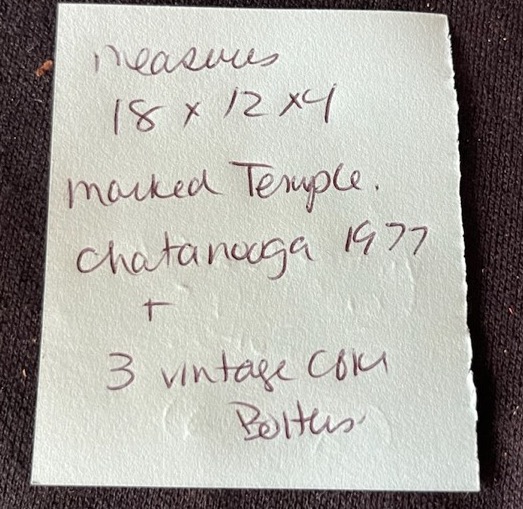 measures
18 x 12 x4
marked Temple.
chatanooga 1977
+
3 vintage